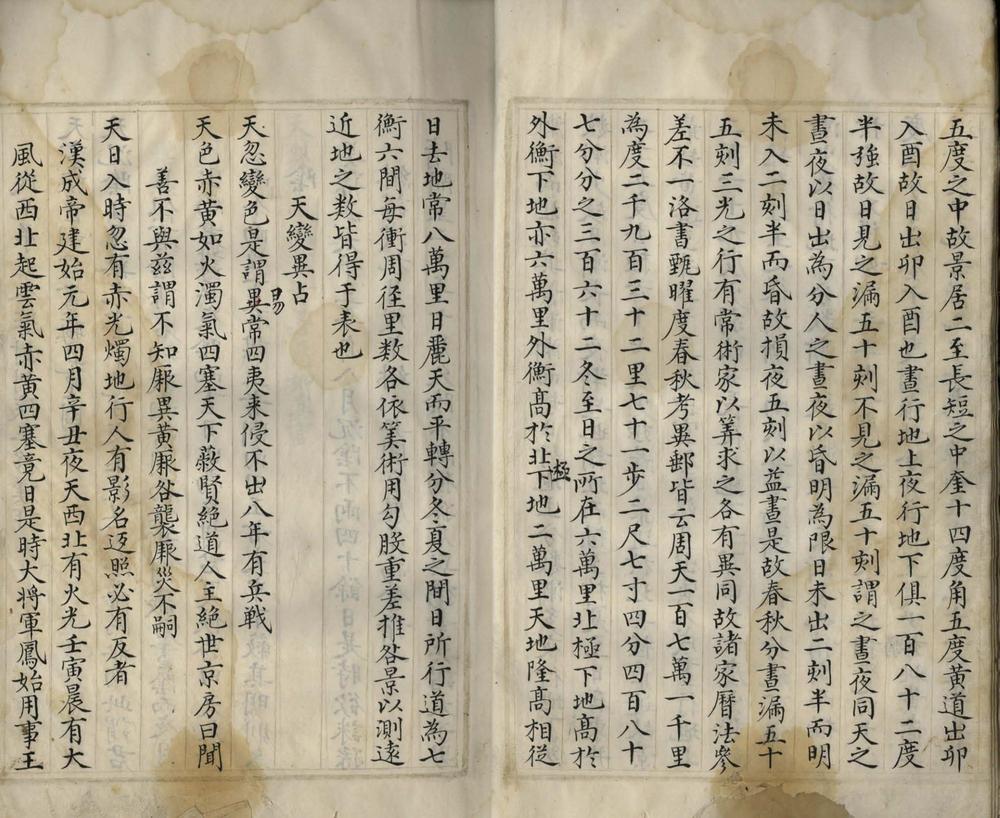 五度之中故景居二至長短之中奎十四度角五度黃道出卯
入酉故日出卯入酉也晝行地上夜行地下俱一百八十二度
半強故日見之漏五十刻不見之漏五十刻謂之晝夜同天之
晝夜以日出為分人之晝夜以昏明為限日未出二刻半而明
未入二刻半而昏故損夜五刻以益晝是故春秋分晝漏五十
五刻三光之行有常術家以筭求之各有異同故諸家曆法參
差不一洛書甄曜度春秋考異郵皆云周天一百七萬一千里
為度二千九百三十二里七十一步二尺七寸四分四百八十
七分分之三百六十二冬至日之所在六萬里北極下地高於
外衡下地亦六萬里外衡高於北極下地二萬里天地隆高相從
日去地常八萬里日麗天而平轉分冬夏之間日所行道為七
衡六間每衝周徑里数各依筭術用勾股重差推晷景以測遠
近地之数皆得于表也
天變異占
天忽變色是謂異易常四夷来侵不出八年有兵戦
天色赤黃如火濁氣四塞天下蔽賢絶道人主絶世京房曰聞
善不與兹謂不知厥異黃厥咎襲厥災不嗣
天日入時忽有赤光燭地行人有影名返照必有反者
漢成帝建始元年四月辛丑夜天西北有火光壬寅晨有大
風從西北起雲氣赤黃四塞竟日是時大将軍鳳始用事王